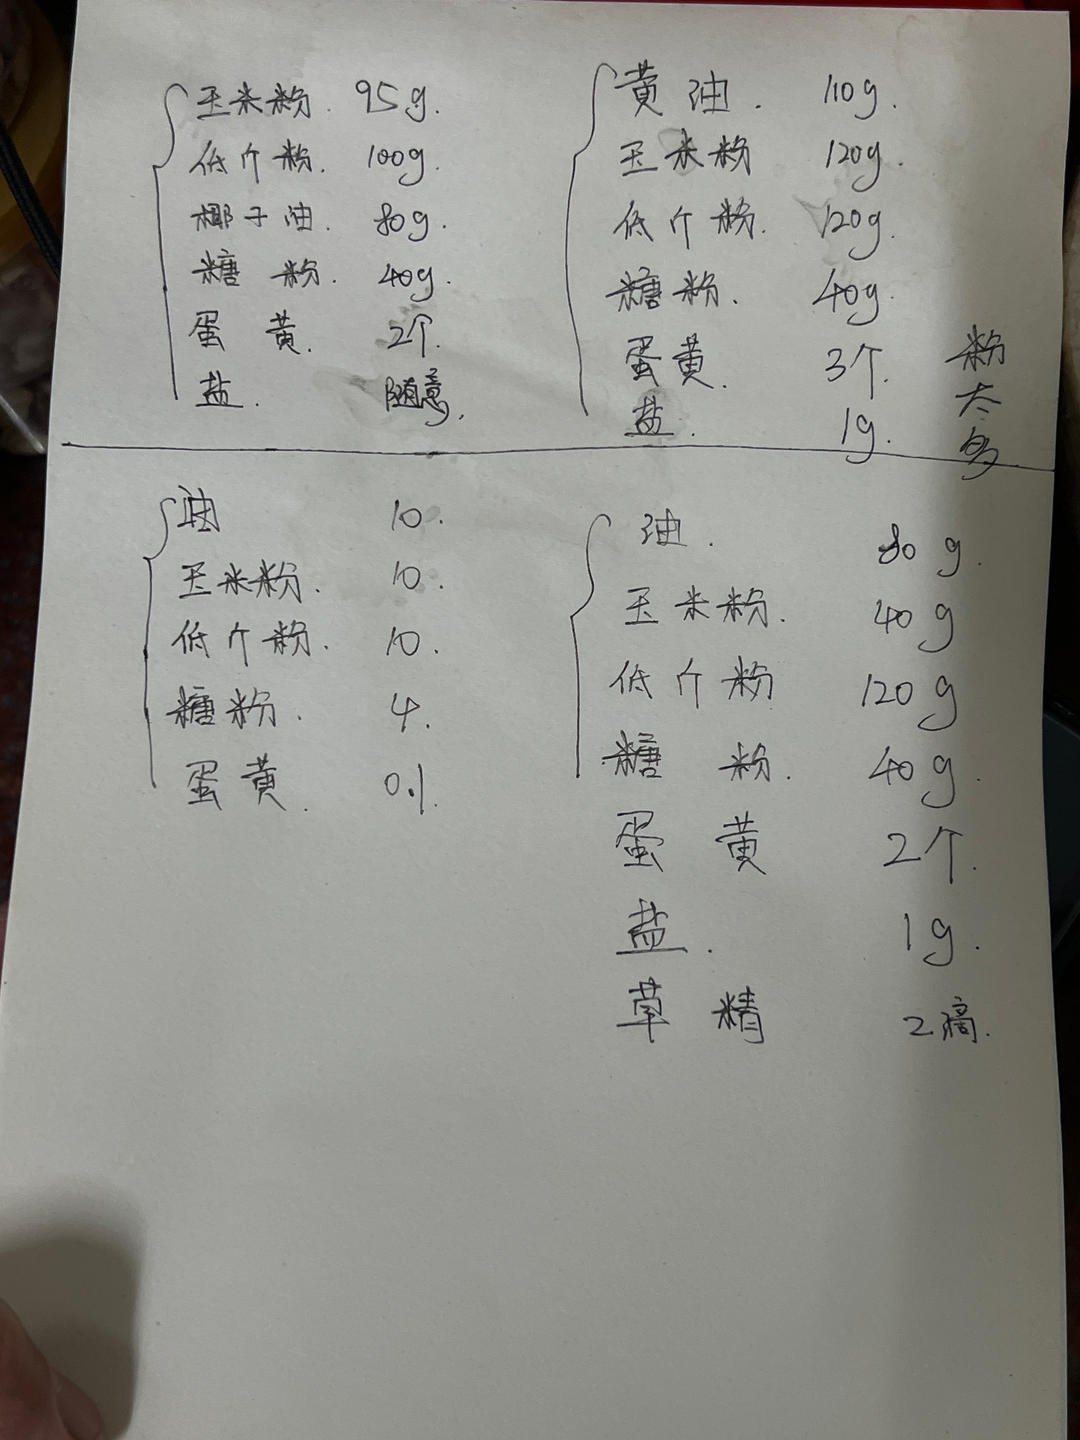 玉米粉. 95g.
低个粉. 100g.
椰子油. 80g.
糖粉. 40g.
蛋黄. 2个.
盐. 随意.
黄油. 110g.
玉米粉 120g.
低个粉. 120g.
糖粉. 40g.
蛋黄. 3个.
盐. 1g.
粉太多
油 10.
玉米粉. 10.
低个粉. 10.
糖粉. 4.
蛋黄. 0.1.
油. 80g.
玉米粉. 40g
低个粉 120g
糖粉. 40g.
蛋黄 2个.
盐. 1g.
草精 2滴.